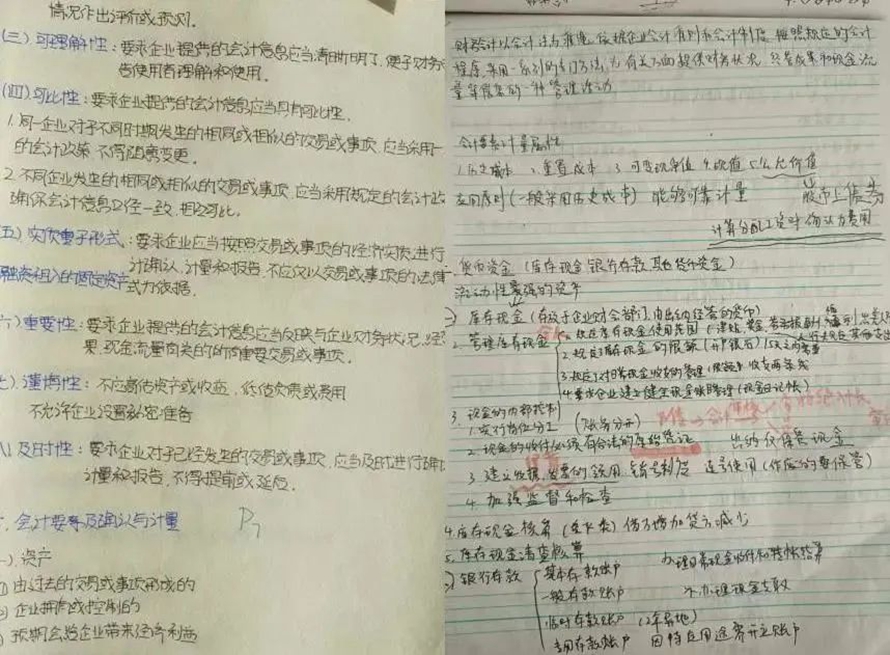 情况作出评价或预测.
(三)可理解性:要求企业提供的会计信息应当清晰明了,便于财务
告使用者理解和使用.
(四)可比性:要求企业提供的会计信息应当具有可比性.
1.同一企业对于不同时期发生的相同或相似的交易或事项,应当采用一
的会计政策,不得随意变更.
2.不同企业发生的相同或相似的交易或事项,应当采用规定的会计政
确保会计信息口径一致,相互可比.
(五)实质重于形式:要求企业应当按照交易或事项的经济实质进行
计确认、计量和报告,不应仅以交易或事项的法律
融资租入的固定资产 式为依据.
六)重要性:要求企业提供的会计信息应当反映与企业财务状况、经
果、现金流量有关的所有重要交易或事项.
七)谨慎性:不应高估资产或收益、低估负债或费用
不允许企业设置秘密准备
八)及时性:要求企业对于已经发生的交易或事项,应当及时进行确
计量和报告,不得提前或延后.
会计要素及确认与计量 P7
一)资产
由过去的交易或事项形成的
企业拥有或控制的
预期会给企业带来经济利益
财务会计以会计法为准绳,依据企业会计准则和会计制度,按照规定的会计
程序,采用一系列的专门方法,为有关方面提供财务状况,经营成果和现金流
量等信息的一种管理活动
会计要素计量属性
1.历史成本 2.重置成本 3.可变现净值 4.现值 5.公允价值
应用原则(一般采用历史成本) 能够可靠计量 股市上债券
计算分配工资时确认为费用
货币资金(库存现金 银行存款 其他货币资金)
流动性最强的资产
库存现金(存放于企业财会部门,由出纳经管的货币)
2.管理库存现金
1.规定库存现金使用范围
2.规定了库存现金的限额(开户银行)
4.要求企业建立健全现金账目管理(现金日记帐)
3.现金的内部控制
1.实行岗位分工 (账务分开)
2.现金的收付必须有合法的原始凭证 出纳仅保管现金
3.建立收据、发票的领用、销号制度 连号使用(作废的要保管)
4.加强监督和检查
4.库存现金核算(是下表)借方增加贷方减少
5.库存现金清查核算
银行存款
基本存款账户 办理日常现金收付和转帐结算
一般存款账户 不办理现金支取
临时存款账户 (2年 异地)
专用存款账户 因特定用途需开立账户